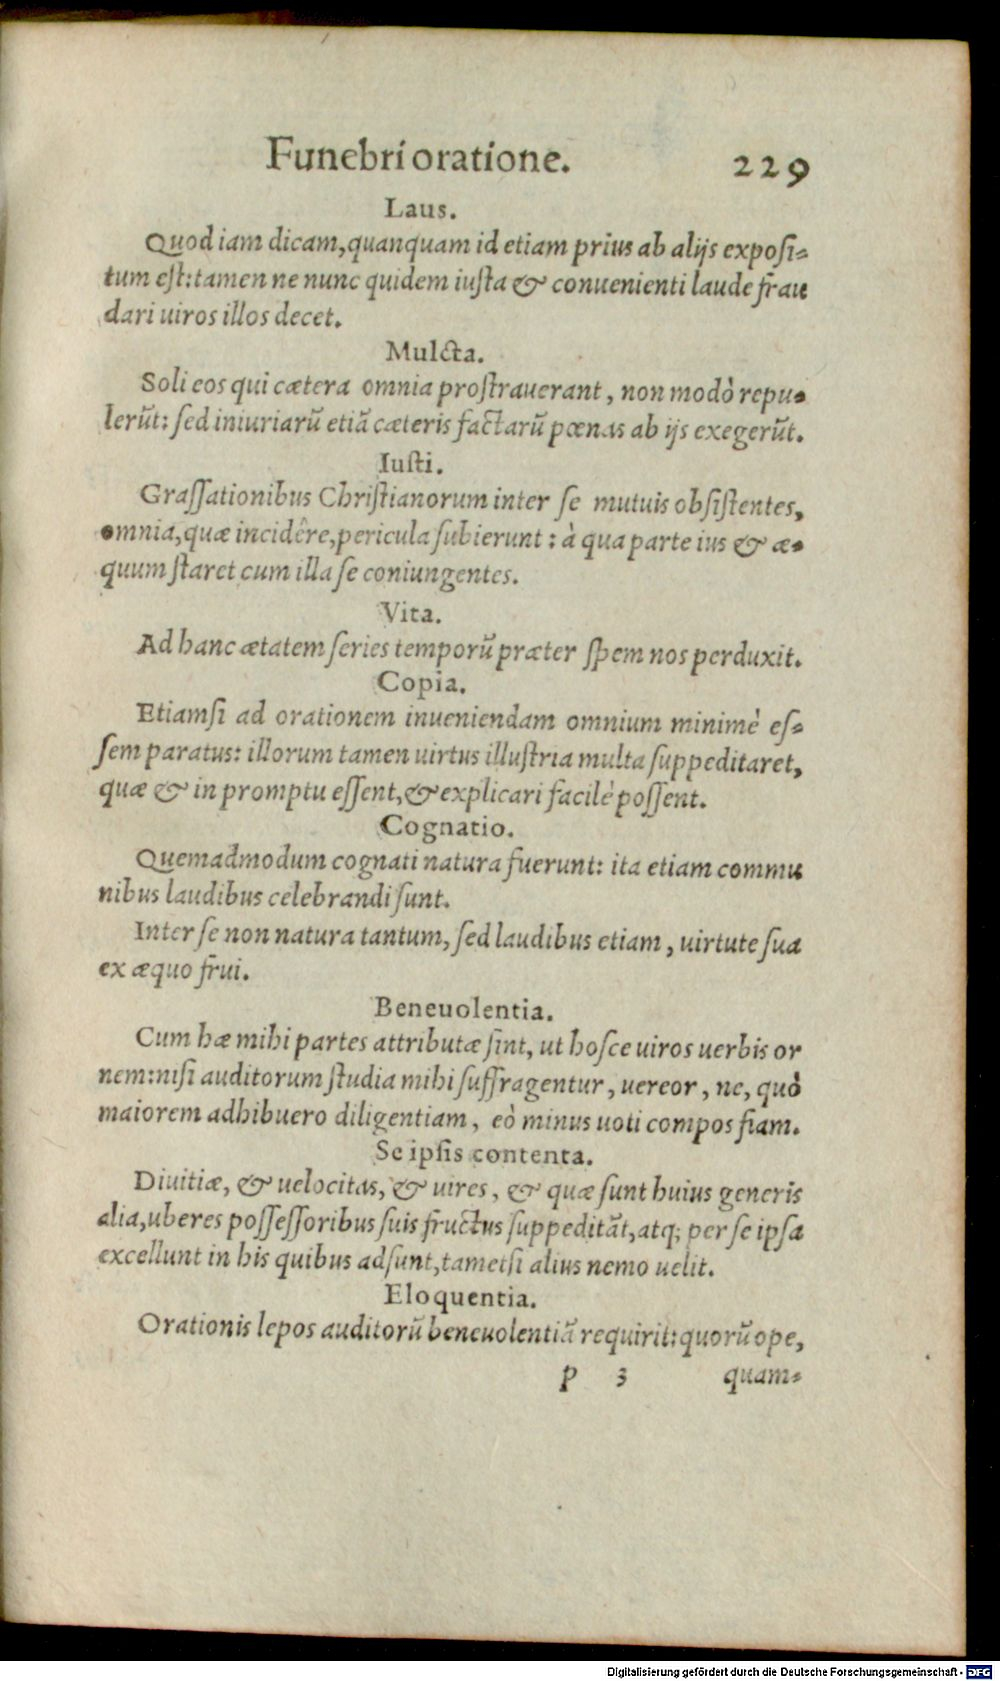 Funebri oratione. 229
Laus.
Quod iam dicam, quanquam id etiam prius ab alijs exposi-
tum est: tamen ne nunc quidem iusta & conuenienti laude frau
dari uiros illos decet.
Mulcta.
Soli eos qui cætera omnia prostrauerant, non modò repu-
lerūt: sed iniuriarū etiā cæteris factarū pœnas ab ijs exegerūt.
Iusti.
Grassationibus Christianorum inter se mutuis obsistentes,
omnia, quæ incidêre, pericula subierunt: à qua parte ius & æ-
quum staret cum illa se coniungentes.
Vita.
Ad hanc ætatem series temporū præter spem nos perduxit.
Copia.
Etiamsi ad orationem inueniendam omnium minimè es-
sem paratus: illorum tamen uirtus illustria multa suppeditaret,
quæ & in promptu essent, & explicari facilè possent.
Cognatio.
Quemadmodum cognati natura fuerunt: ita etiam commu
nibus laudibus celebrandi sunt.
Inter se non natura tantum, sed laudibus etiam, uirtute sua
ex æquo frui.
Beneuolentia.
Cum hæ mihi partes attributæ sint, ut hosce uiros uerbis or
nem: nisi auditorum studia mihi suffragentur, uereor, ne, quò
maiorem adhibuero diligentiam, eò minus uoti compos fiam.
Se ipsis contenta.
Diuitiæ, & uelocitas, & uires, & quæ sunt huius generis
alia, uberes possessoribus suis fructus suppeditāt, atq; per se ipsa
excellunt in his quibus adsunt, tametsi alius nemo uelit.
Eloquentia.
Orationis lepos auditorū beneuolentiā requirit: quorū ope,
p 3 quam-
Digitalisierung gefördert durch die Deutsche Forschungsgemeinschaft - DFG